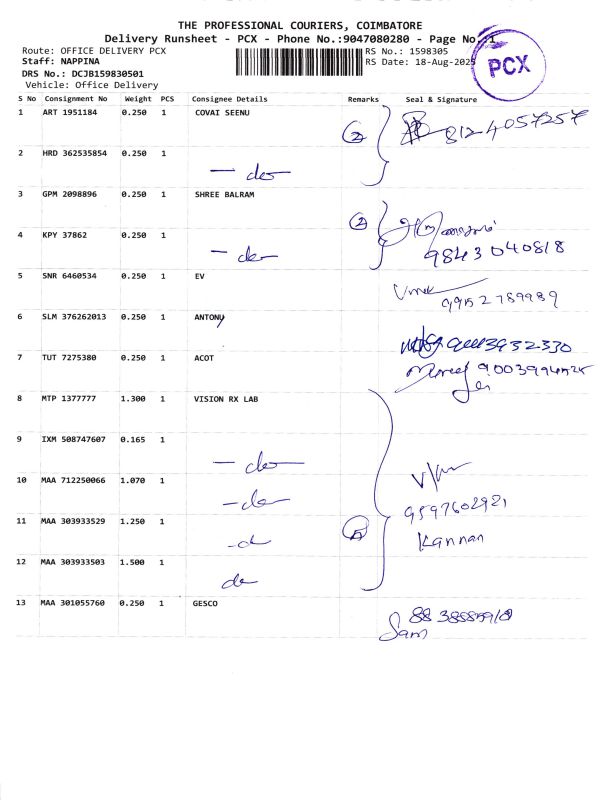 THE PROFESSIONAL COURIERS, COIMBATORE
Delivery Runsheet - PCX - Phone No.:9047080280 - Page No.:1
Route: OFFICE DELIVERY PCX
RS No.: 1598305
Staff: NAPPINA
RS Date: 18-Aug-2025
PCX
DRS No.: DCJB159830501
Vehicle: Office Delivery
S No Consignment No Weight PCS Consignee Details Remarks Seal & Signature
1 ART 1951184 0.250 1 COVAI SEENU 2 8124057257
2 HRD 362535854 0.250 1 - do -
3 GPM 2098896 0.250 1 SHREE BALRAM 2
4 KPY 37862 0.250 1 - do - 9843040818
5 SNR 6460534 0.250 1 EV 9952789989
6 SLM 376262013 0.250 1 ANTONY
7 TUT 7275380 0.250 1 ACOT
8 MTP 1377777 1.300 1 VISION RX LAB
9 IXM 508747607 0.165 1 - do -
10 MAA 712250066 1.070 1 - do -
9597602921
11 MAA 303933529 1.250 1 - do 5 Kannan
12 MAA 303933503 1.500 1 do
13 MAA 301055760 0.250 1 GESCO
Sam